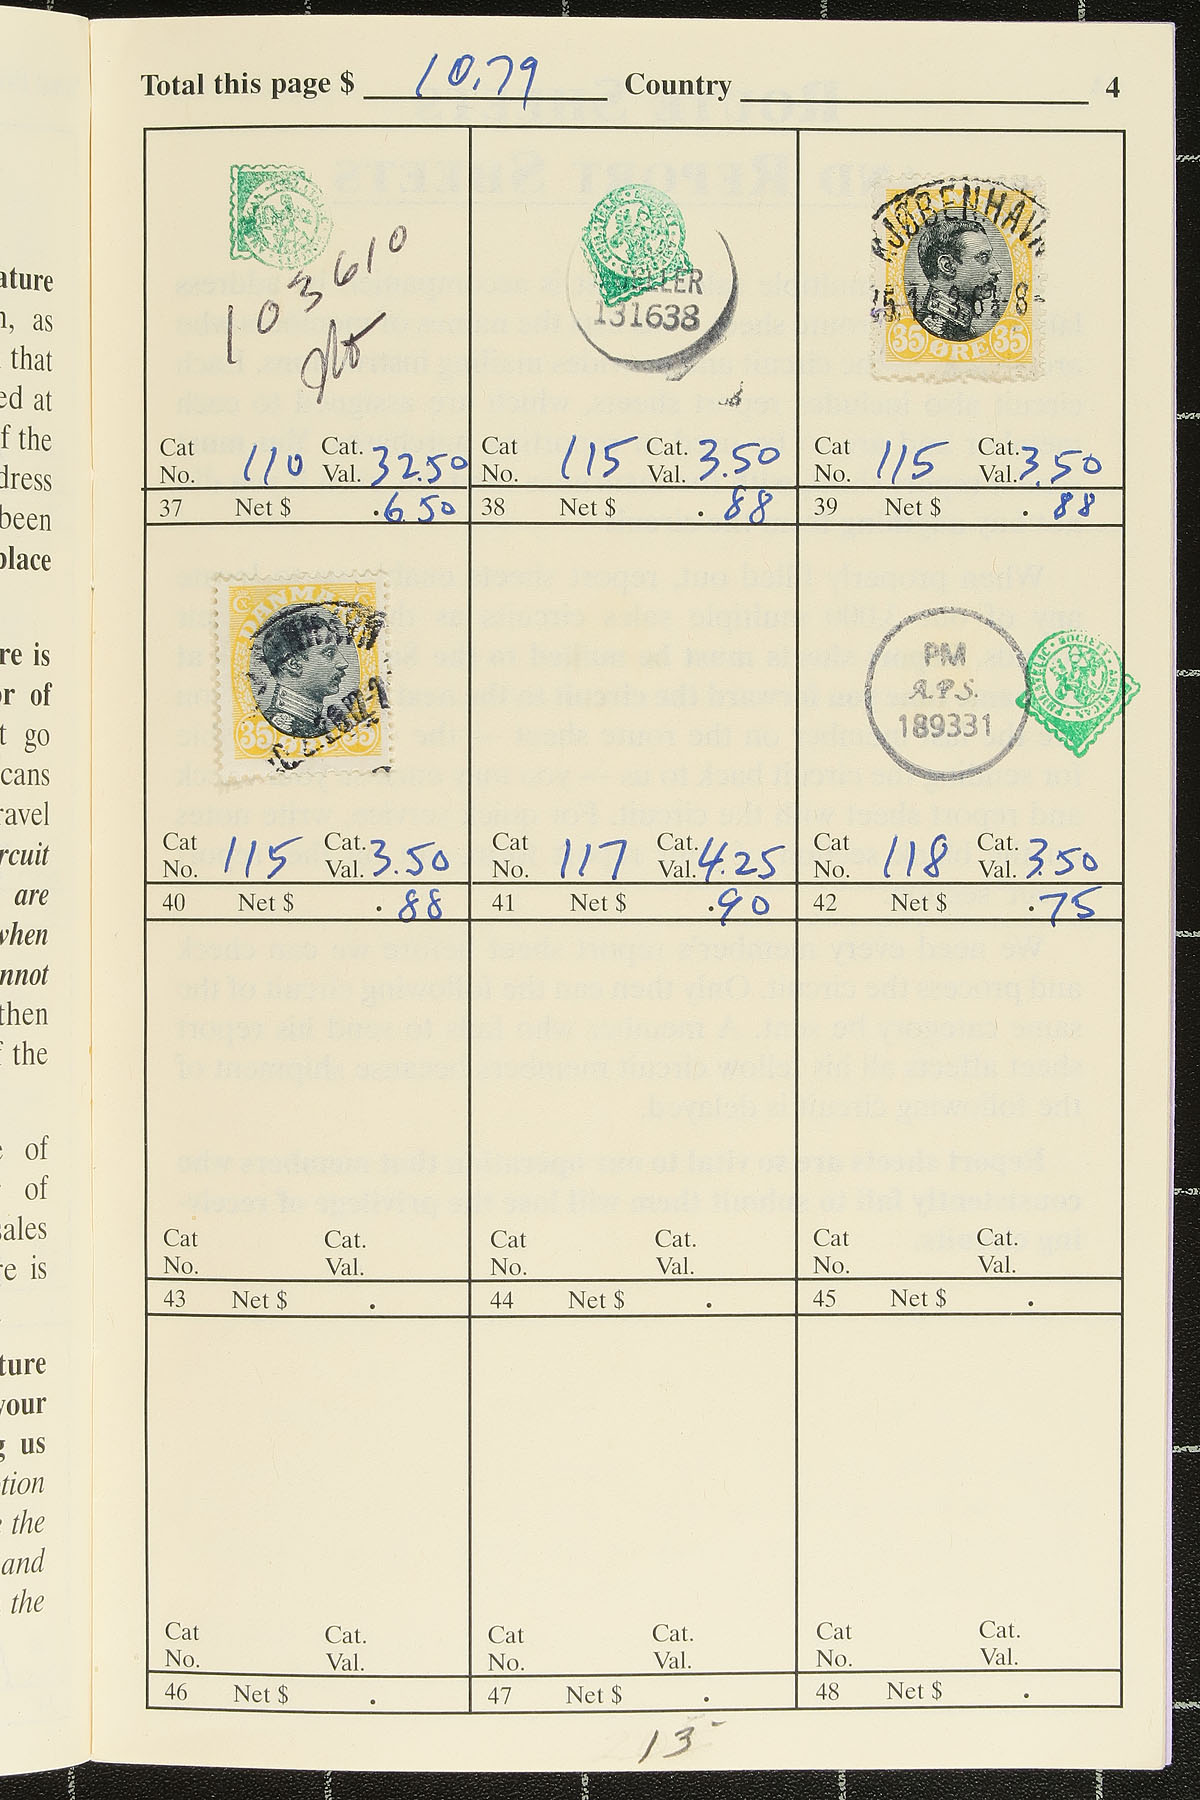 Total this page $ 10.79 Country 4
103610
KELLER
131638
KJØBENHAVN
35 ØRE 35
Cat No. 110 Cat. Val. 32.50
37 Net $ .6.50
Cat No. 115 Cat. Val. 3.50
38 Net $ .88
Cat No. 115 Cat. Val. 3.50
39 Net $ .88
DANMARK
35 35
PM
A.P.S.
189331
AMERICAN PHILATELIC SOCIETY
Cat No. 115 Cat. Val. 3.50
40 Net $ .88
Cat No. 117 Cat. Val. 4.25
41 Net $ .90
Cat No. 118 Cat. Val. 3.50
42 Net $ .75
Cat No. Cat. Val.
43 Net $ .
Cat No. Cat. Val.
44 Net $ .
Cat No. Cat. Val.
45 Net $ .
Cat No. Cat. Val.
46 Net $ .
Cat No. Cat. Val.
47 Net $ .
Cat No. Cat. Val.
48 Net $ .
13
ature
, as
that
ed at
f the
dress
been
place
re is
or of
t go
cans
ravel
rcuit
are
when
nnot
then
f the
of
of
sales
re is
ture
your
g us
tion
the
and
the